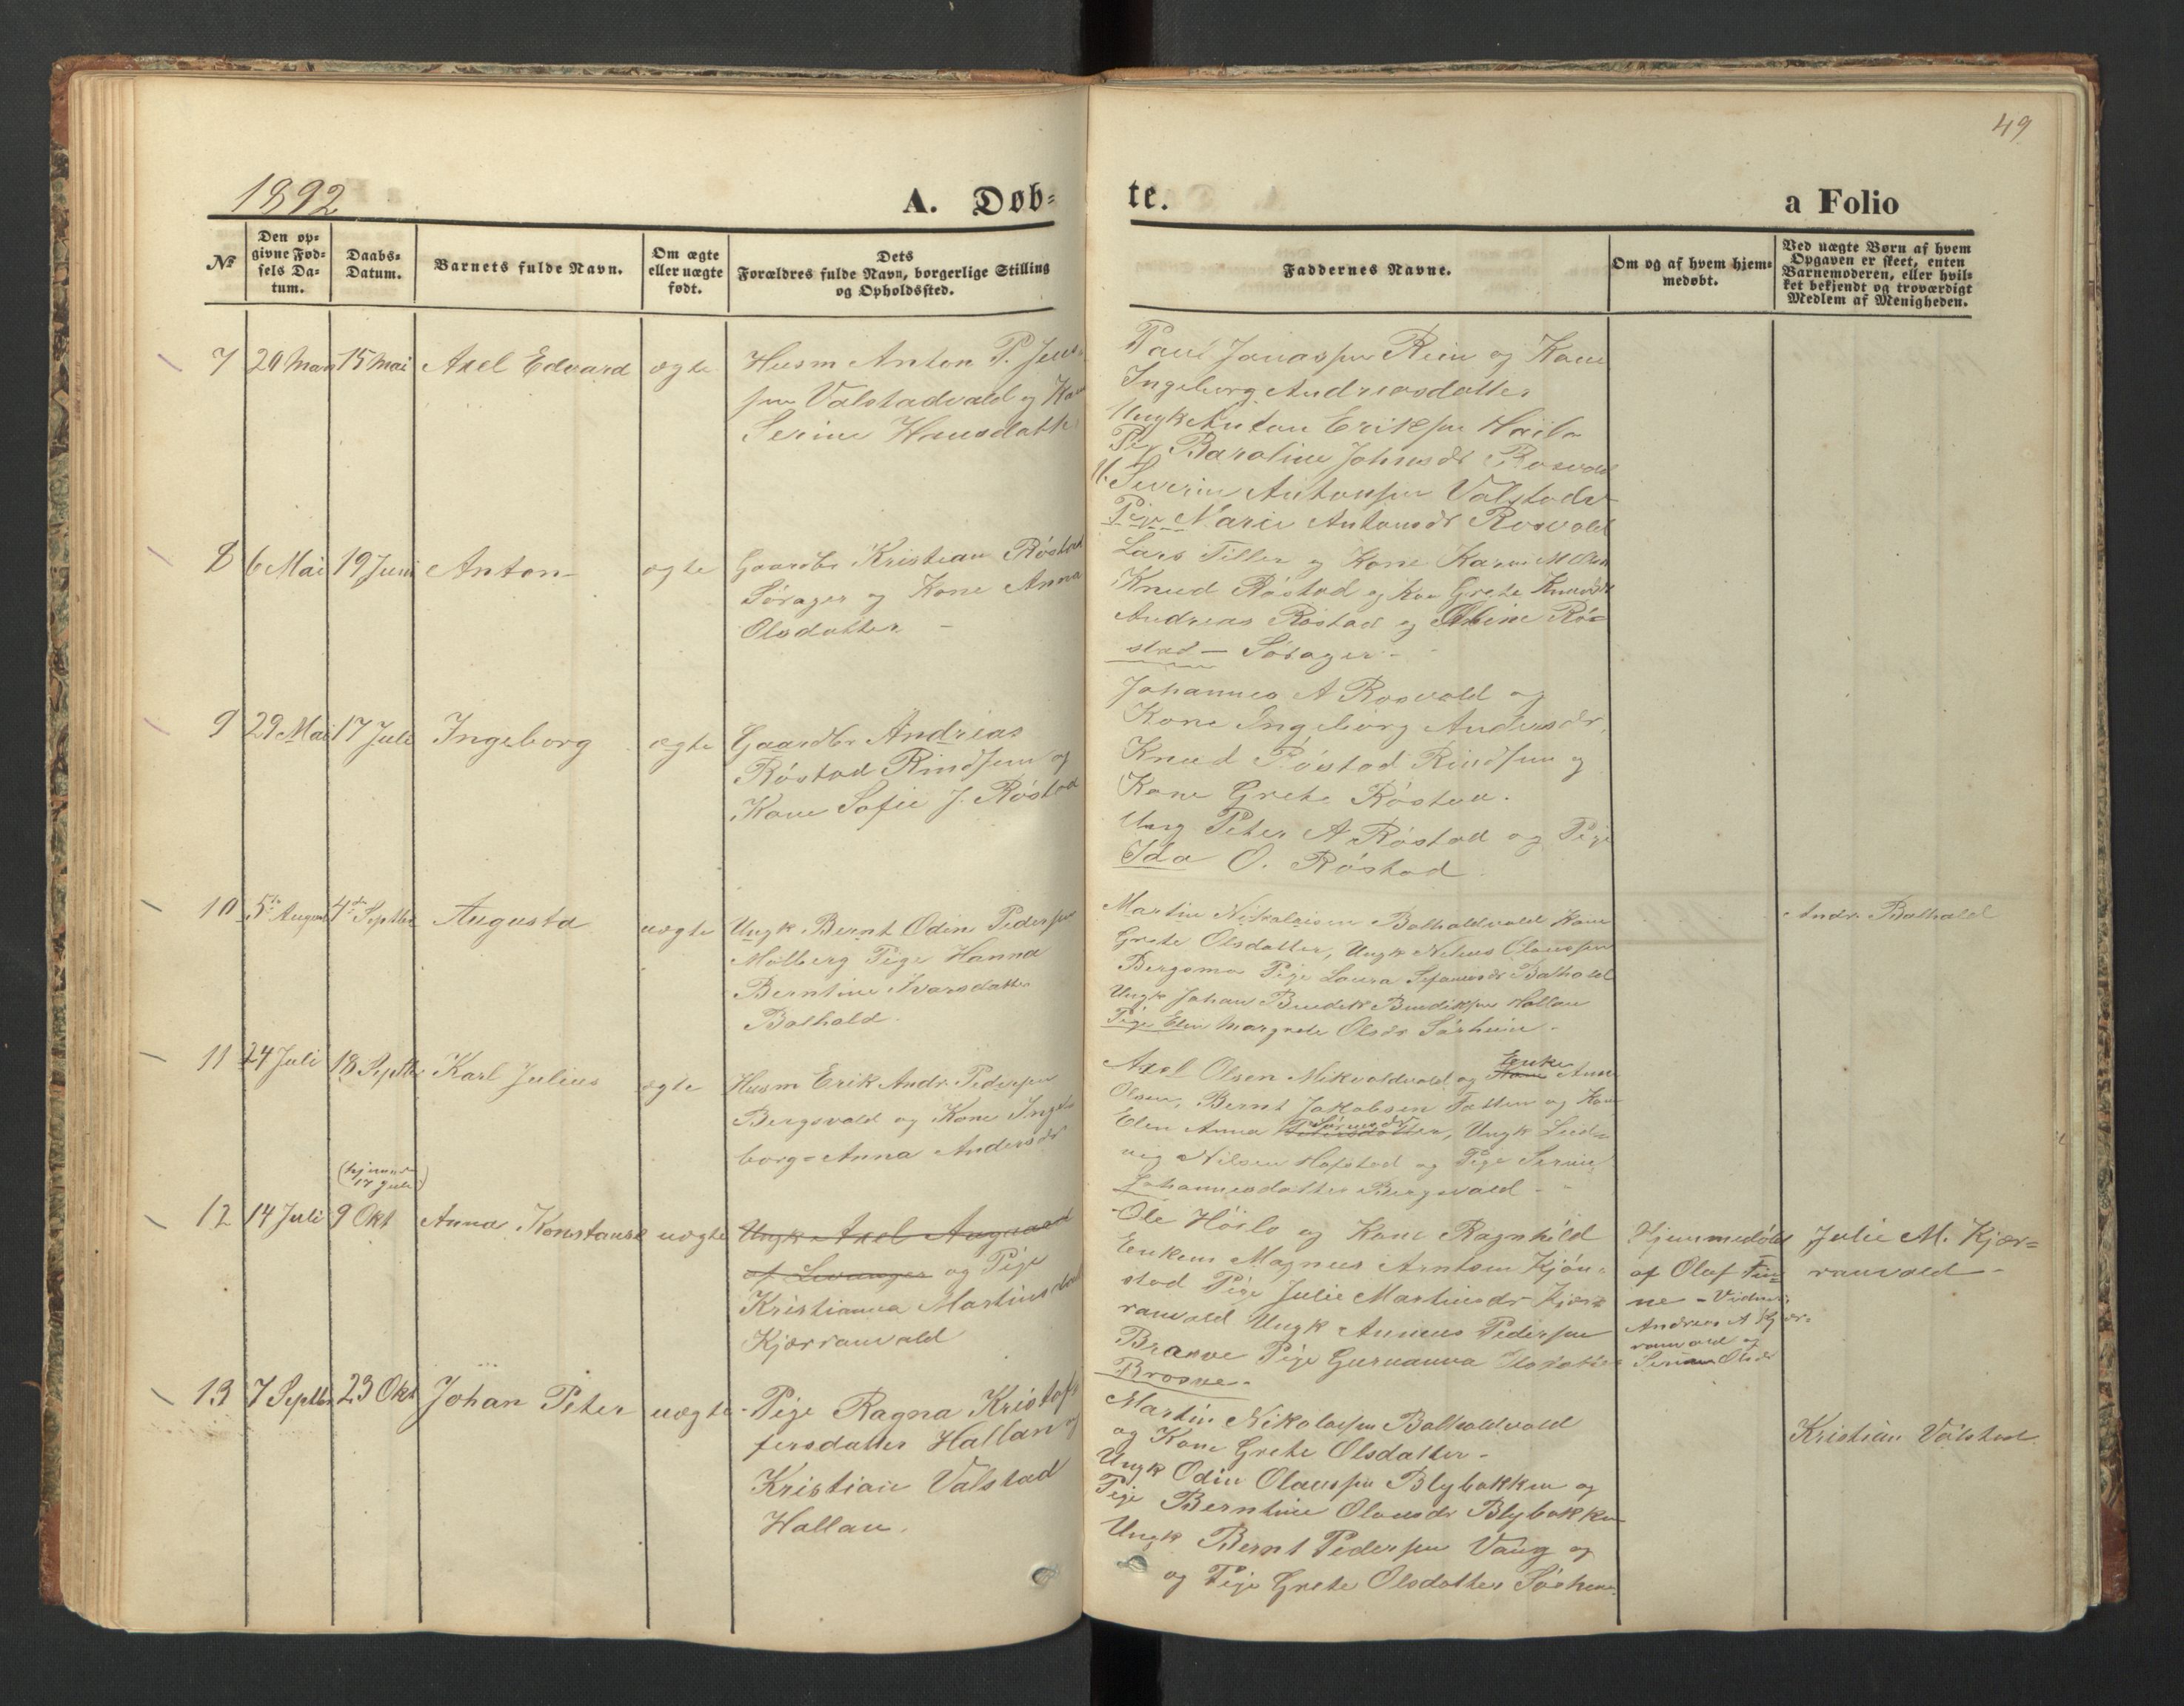 49
1892
A. Døb-
te.
a Folio
№
Den op-
givne Fød-
sels Da-
tum.
Daabs-
Datum.
Barnets fulde Navn.
Om ægte
eller uægte
født.
Dets
Forældres fulde Navn, borgerlige Stilling
og Opholdssted.
Faddernes Navne.
Om og af hvem hjem-
medøbt.
Ved uægte Børn af hvem
Opgaven er skeet, enten
Barnemoderen, eller hvil-
ket bekjendt og troværdigt
Medlem af Menigheden.
7
15 Mai
Axel Edvard
ægte
Husm Anton P. Jens
sen Valstadvald og Kone
Serine Hansdatter
Paul Jonassen Rein og Kone
Ingeborg Andreasdatter
Ungk Anton Eriksen
Pige Johnsdr
U. Severin Antonsen Valstadv
Pige Marie Antonsdr Rosvold
8
6 Mai
19 Juni
Anton
ægte
Gaardbr Kristian Røstad
Søroger og Kone Anna
Olsdatter
Lars Tiller og Kone Karen M Olsd
Knud Røstad og Kone Grete Knudsdr
Andreas Røstad og Røs
stad - Søroger
9
29 Mai
17 Juli
Ingeborg
ægte
Gaardbr Andreas
Røstad Rindsem og
Kone Sofie J. Røstad
Johannes A Rosvold og
Kone Ingeborg Andersdr.
Knud Røstad Rindsem og
Kone Grete Røstad.
Ung Peter A Røstad og Pige
Ida O. Røstad
10
5te August
4de Septbr
Augusta
uægte
Ungk Bernt Odin Pedersen
Molberg Pige Hanna
Berntine Ivarsdatter
Balhald.
Martin Nikolaisen Balhaldvald Kone
Grete Olsdatter, Ungk Olaussen
Pige Laura Balhald
Ungk Johan Bendik Bendiksen Hallan
Pige Elen Margrete Olsdr Sørheim.
Andr. Balhald
11
24 Juli
18 Septbr
Karl Julius
ægte
Husm Erik Andr. Pedersen
Bergsvald og Kone Inge
borg-Anna Andersdr
Enke
Axel Olsen Mikvoldvald og Kone Anne
Olsen, Bernt Jakobsen og Kone
Sørensdr
Elen Anna Ungk Lud-
vig Nilsen Hofstad og Pige Serine
Johannesdatter Bergsvald
12
14 Juli
(hjemme
17 Juli)
9 Okt
Anna Konstanse
uægte
Ungk Axel Augaard
af Levanger og Pige
Kristianna Martinsdatter
Kjærranvald
Ole Høilo og Kone Ragnhild
Enkem Magnus Arntsen Kjøn-
stad Pige Julie Martinusdr Kjær
ranvald Ungk Pedersen
Braave Pige Gurianna Olsdatter
Hjemmedøbt
af Olaf Fin-
ne - Vidner:
Andreas A Kjær-
ranvald og
Serian Olsdr
Julie M. Kjær-
ranvald -
13
7 Septbr
23 Okt
Johan Peter
uægte
Pige Ragna Kristof
fersdatter Hallan og
Kristian Valstad
Hallan.
Martin Nikolaisen Balhaldvald
og Kone Grete Olsdatter -
Ungk Odin Olaussen Blybakken og
Pige Berntine Olausdr Blybakken
Ungk Bernt Pedersen Vang og
og Pige Grete Olsdatter Sørheim.
Kristian Valstad